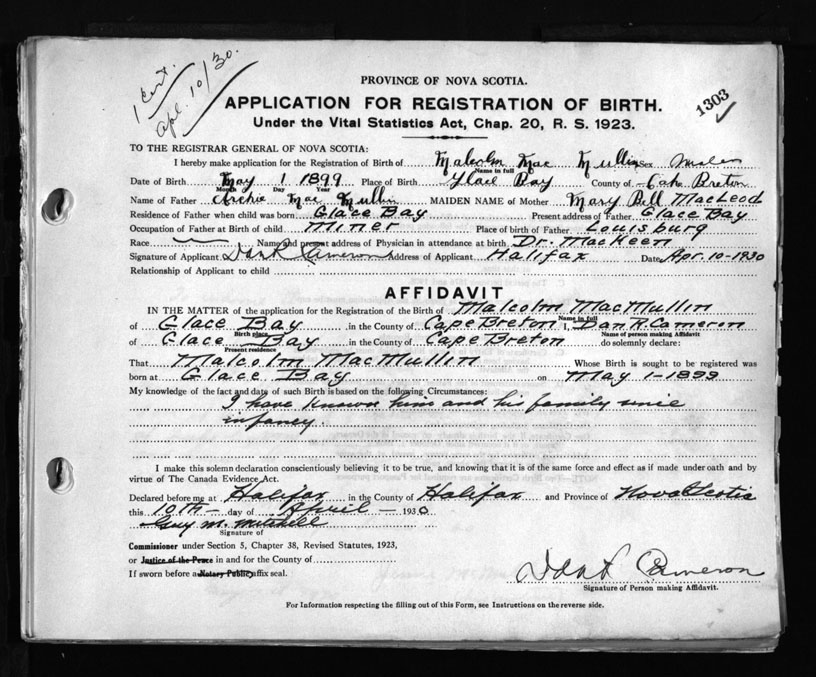 1 Cert.
Apl. 10/30.
PROVINCE OF NOVA SCOTIA.
1303
APPLICATION FOR REGISTRATION OF BIRTH.
Under the Vital Statistics Act, Chap. 20, R. S. 1923.
TO THE REGISTRAR GENERAL OF NOVA SCOTIA:
I hereby make application for the Registration of Birth of Malcolm Mac Mullin Sex male
Name in full
Date of Birth May 1 1899 Place of Birth Glace Bay County of Cape Breton
Month Day Year
Name of Father Archie Mac Mullin MAIDEN NAME of Mother Mary Bell MacLeod
Residence of Father when child was born Glace Bay Present address of Father Glace Bay
Occupation of Father at Birth of child Miner Place of birth of Father Louisburg
Race Name and present address of Physician in attendance at birth Dr. MacKeen
Signature of Applicant Dan R Cameron Address of Applicant Halifax Date Apr. 10-1930
Relationship of Applicant to child
AFFIDAVIT
IN THE MATTER of the application for the Registration of the Birth of Malcolm MacMullin
Name in full
of Glace Bay in the County of Cape Breton I, Dan R. Cameron
Birth place Name of person making Affidavit
of Glace Bay in the County of Cape Breton do solemnly declare:
Present residence
That Malcolm MacMullin Whose Birth is sought to be registered was
born at Glace Bay on May 1-1899
My knowledge of the fact and date of such Birth is based on the following Circumstances:
I have known him and his family since
infancy.
I make this solemn declaration conscientiously believing it to be true, and knowing that it is of the same force and effect as if made under oath and by
virtue of The Canada Evidence Act.
Declared before me at Halifax in the County of Halifax and Province of Nova Scotia
this 10th day of April 1930
Guy M. Mitchell
Signature of
Commissioner under Section 5, Chapter 38, Revised Statutes, 1923,
or Justice of the Peace in and for the County of
If sworn before a Notary Public, affix seal.
Dan R Cameron
Signature of Person making Affidavit.
For Information respecting the filling out of this Form, see Instructions on the reverse side.